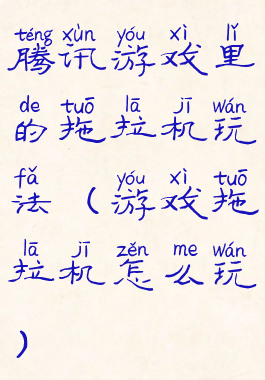 téng xùn yóu xì lǐ
腾讯游戏里
de tuō lā jī wán
的拖拉机玩
fǎ yóu xì tuō
法（游戏拖
lā jī zěn me wán
拉机怎么玩
）